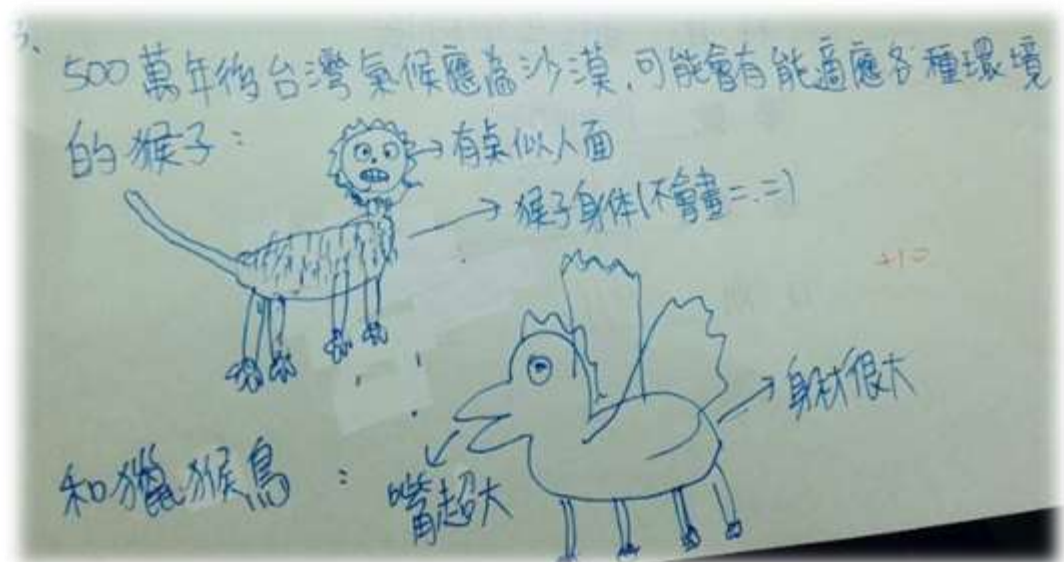 3、
500萬年後台灣氣候應為沙漠,可能會有能適應各種環境
的猴子:
有臭似人面
猴子身体(不會畫=.=)
+10
身材很大
和獵猴鳥:
嘴超大